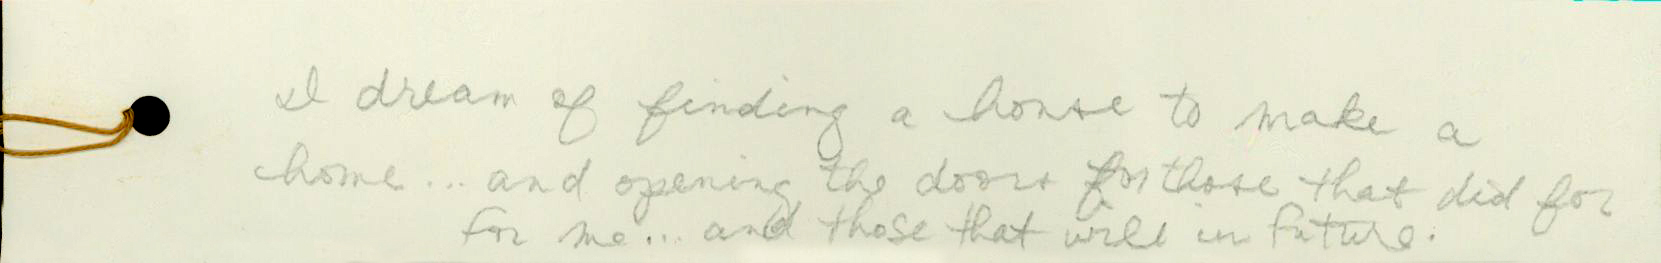 I dream of finding a house to make a
home... and opening the doors for those that did for
for me... and those that will in future.